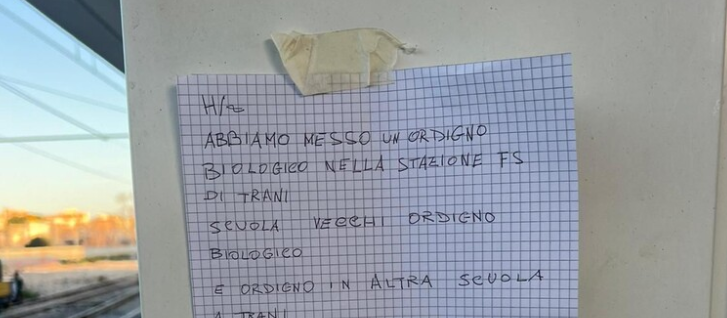 H/~
ABBIAMO MESSO UN ORDIGNO
BIOLOGICO NELLA STAZIONE FS
DI TRANI
SCUOLA VECCHI ORDIGNO
BIOLOGICO
E ORDIGNO IN ALTRA SCUOLA
A TRANI